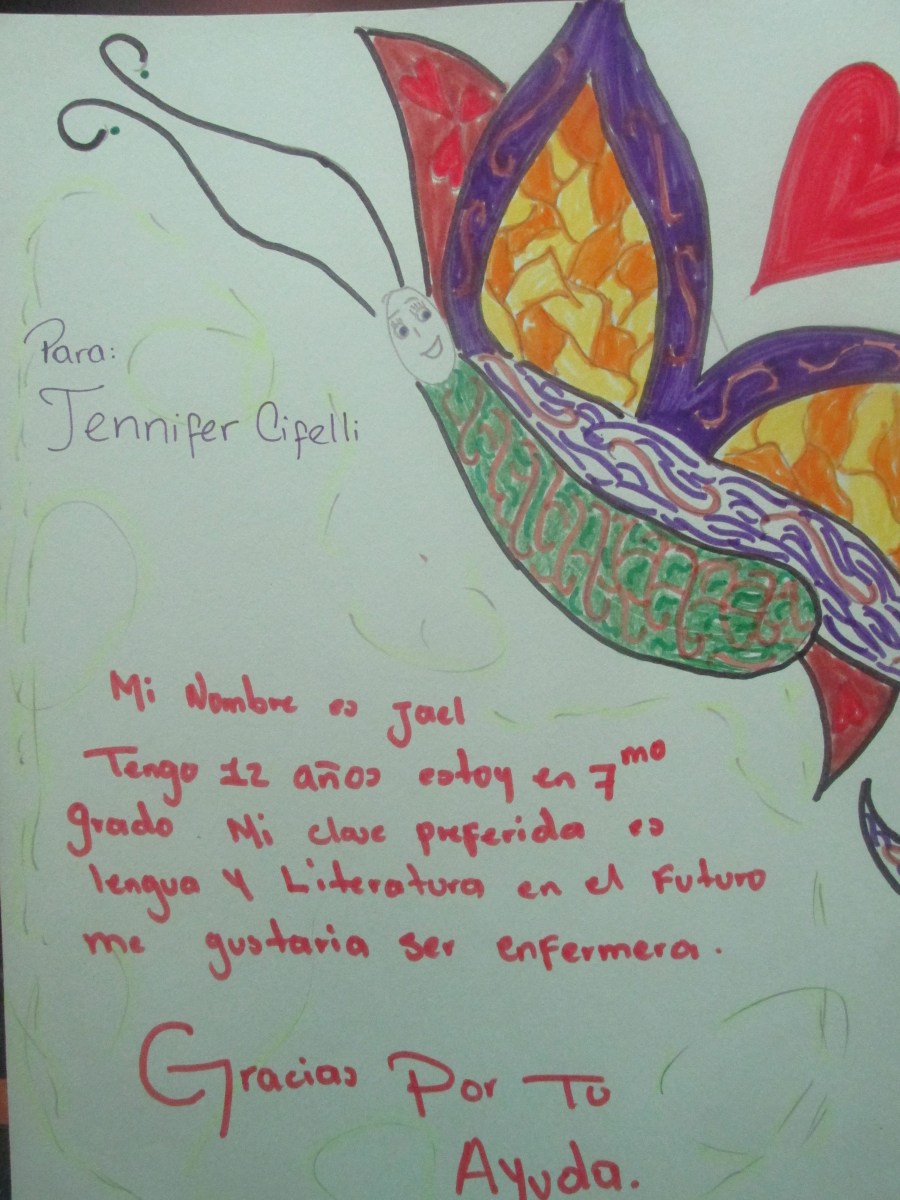 Para:
Jennifer Cifelli
Mi Nombre es Jael
Tengo 12 años estoy en 7mo
grado Mi clase preferida es
lengua y Literatura en el Futuro
me gustaria ser enfermera.
Gracias Por Tu
Ayuda.